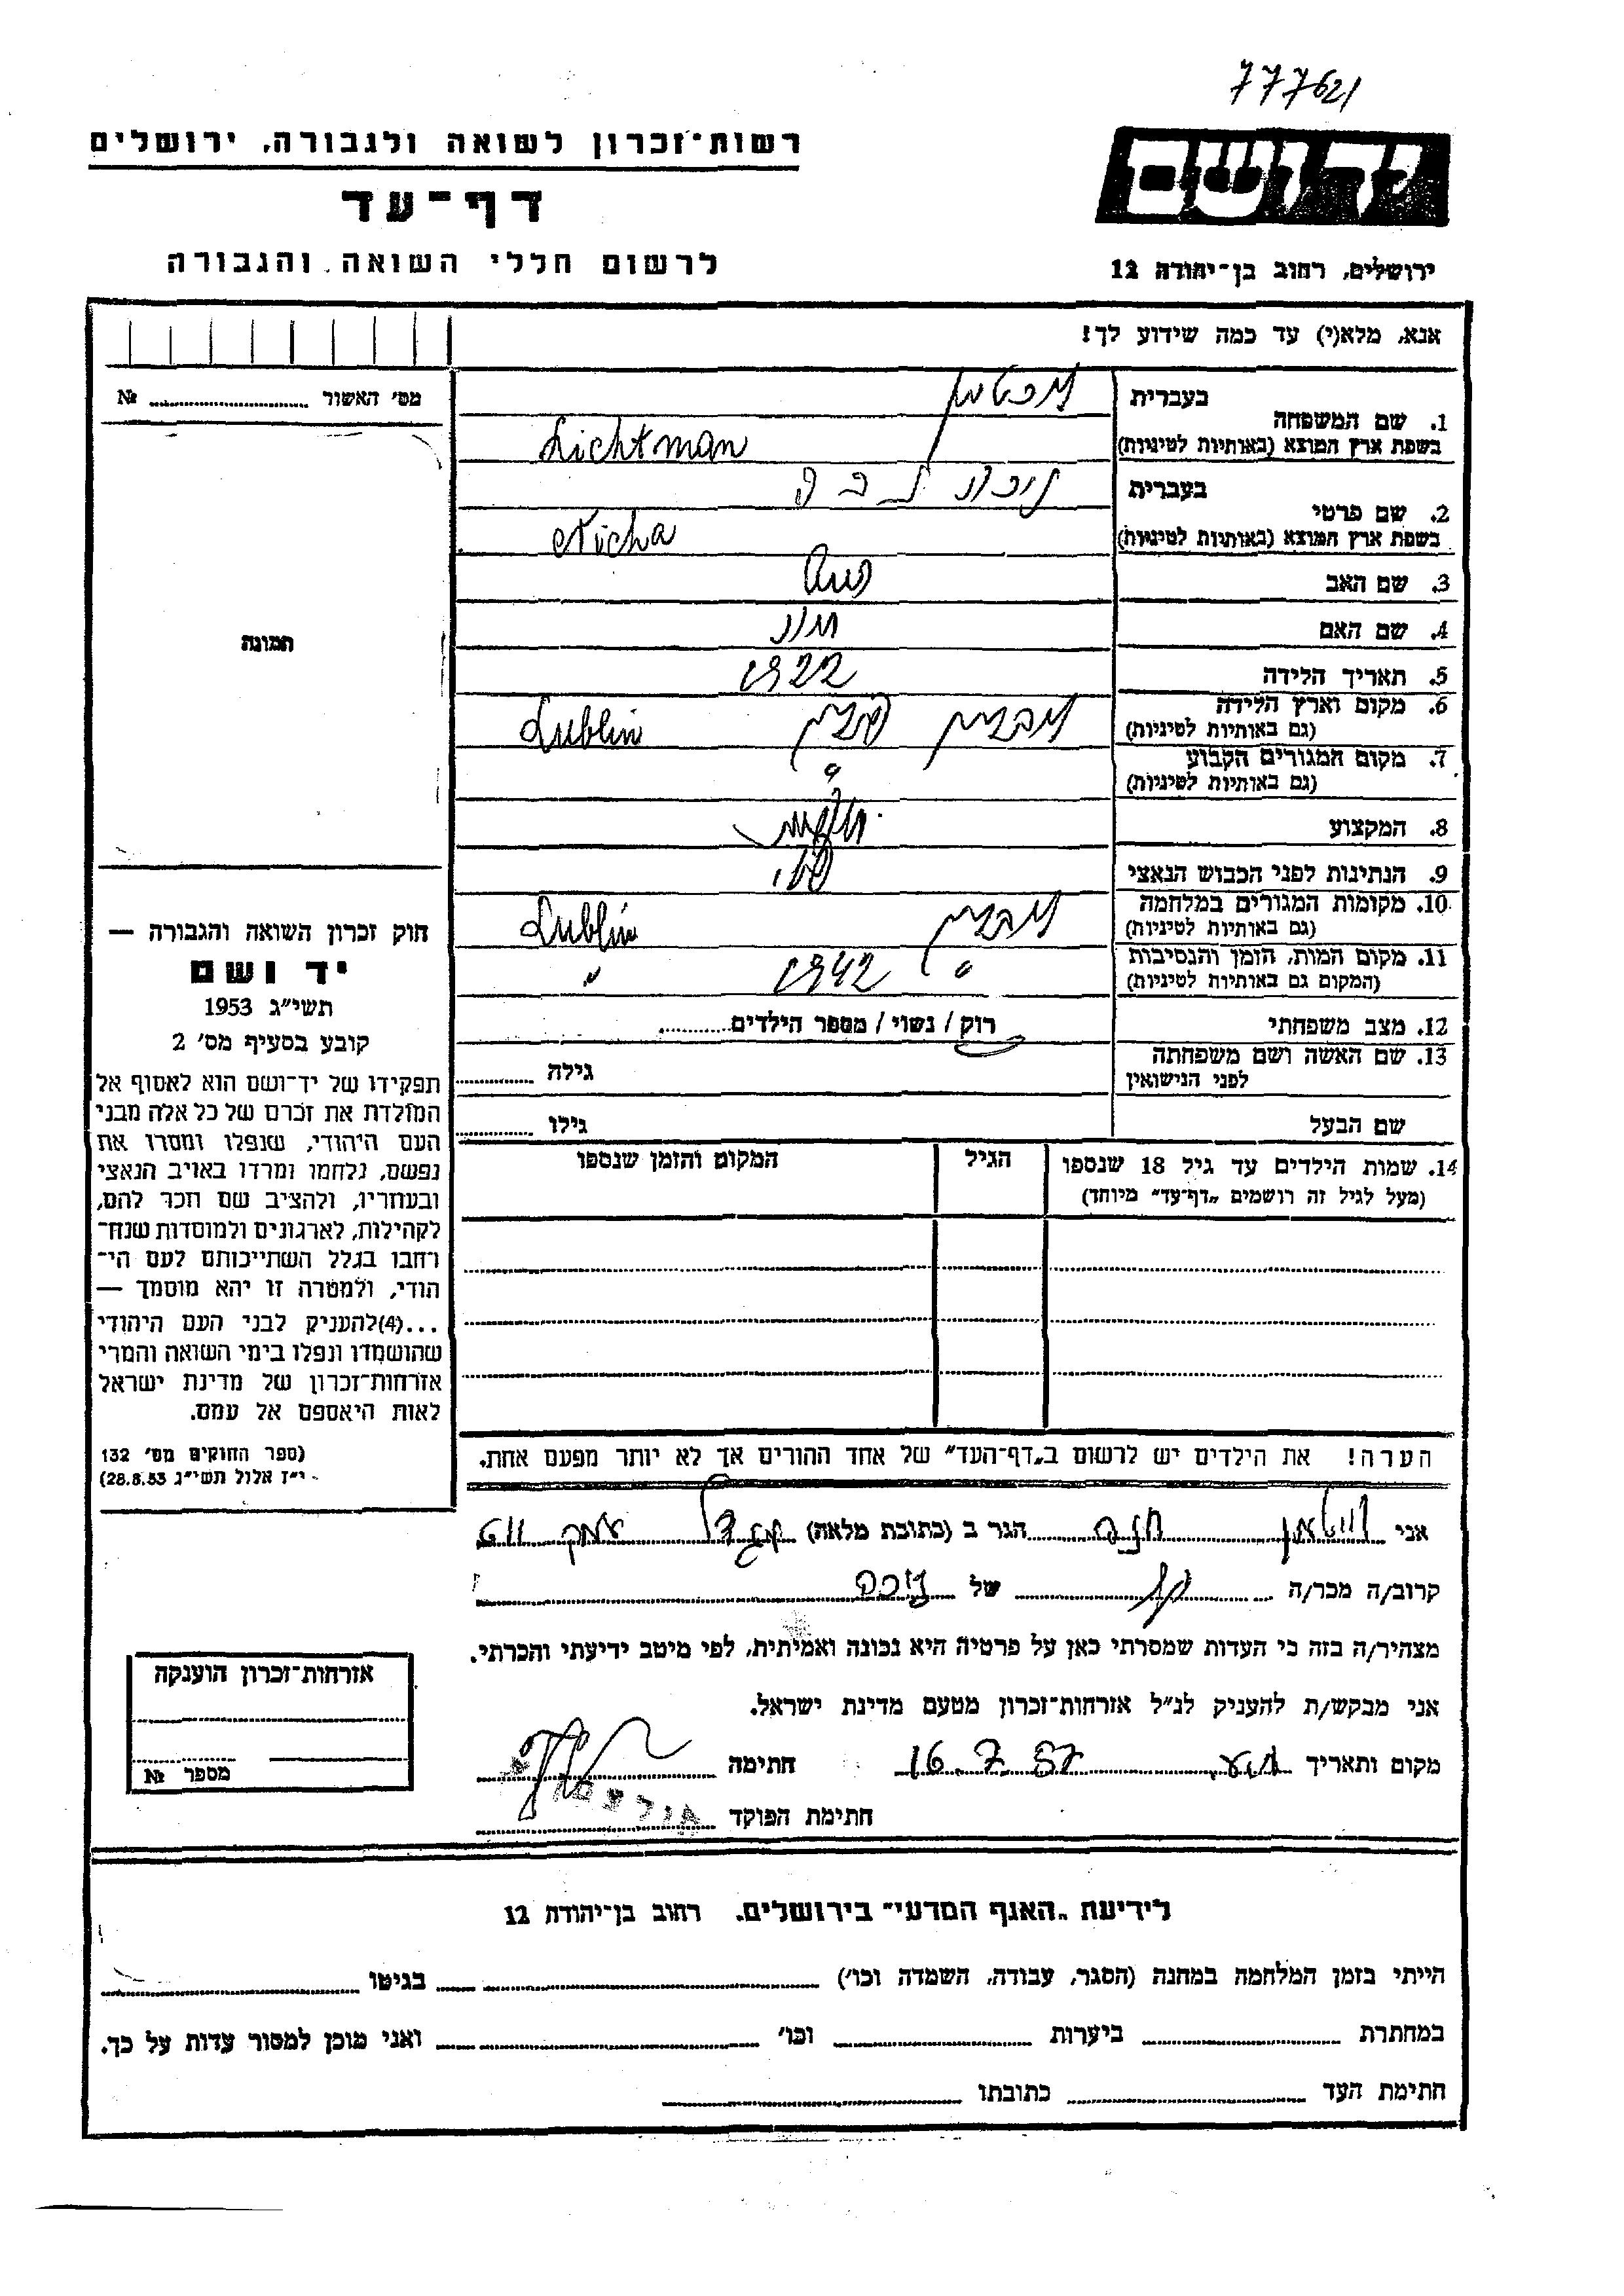 777621
רשות־זכרון לשואה ולגבורה, ירושלים
יד ושם
דף־עד
לרשום חללי השואה והגבורה
ירושלים, רחוב בן־יהודה 12
אנא, מלא(י) עד כמה שידוע לך!
מס׳ האשור № 
1. שם המשפחה
בעברית ליכטמן
בשפת ארץ המוצא (באותיות לטיניות) Lichtman
2. שם פרטי
בעברית
בשפת ארץ המוצא (באותיות לטיניות) Nicha
3. שם האב
4. שם האם
5. תאריך הלידה 1922
6. מקום וארץ הלידה
(גם באותיות לטיניות) לובלין פולין Lublin
7. מקום המגורים הקבוע
(גם באותיות לטיניות) "
8. המקצוע
9. הנתינות לפני הכבוש הנאצי
10. מקומות המגורים במלחמה
(גם באותיות לטיניות) לובלין Lublin
11. מקום המות, הזמן והנסיבות
(המקום גם באותיות לטיניות) " 1942 "
12. מצב משפחתי רוק / נשוי / מספר הילדים
13. שם האשה ושם משפחתה
לפני הנישואין גילה
שם הבעל גילו
14. שמות הילדים עד גיל 18 שנספו
(מעל לגיל זה רושמים „דף־עד" מיוחד)
הגיל
המקום והזמן שנספו
הערה! את הילדים יש לרשום ב„דף־העד" של אחד ההורים אך לא יותר מפעם אחת.
תמונה
חוק זכרון השואה והגבורה —
יד ושם
תשי״ג 1953
קובע בסעיף מס׳ 2
תפקידו של יד־ושם הוא לאסוף אל
המולדת את זכרם של כל אלה מבני
העם היהודי, שנפלו ומסרו את
נפשם, נלחמו ומרדו באויב הנאצי
ובעוזריו, ולהציב שם וזכר להם,
לקהילות, לארגונים ולמוסדות שנח־
רבו בגלל השתייכותם לעם הי־
הודי, ולמטרה זו יהא מוסמך —
...(4) להעניק לבני העם היהודי
שהושמדו ונפלו בימי השואה והמרי
אזרחות־זכרון של מדינת ישראל
לאות היאספם אל עמם.
(ספר החוקים מס׳ 132
י״ז אלול תשי״ג 28.8.53)
אני חנה הגר ב (כתובת מלאה)
קרוב/ה מכר/ה של
מצהיר/ה בזה כי העדות שמסרתי כאן על פרטיה היא נכונה ואמיתית, לפי מיטב ידיעתי והכרתי.
אני מבקש/ת להעניק לנ״ל אזרחות־זכרון מטעם מדינת ישראל.
מקום ותאריך 16.7.57 חתימה
חתימת הפוקד
אזרחות־זכרון הוענקה
מספר №
לידיעת „האגף המדעי" בירושלים, רחוב בן־יהודה 12
הייתי בזמן המלחמה במחנה (הסגר, עבודה, השמדה וכו׳) בגיטו
במחתרת ביערות וכו׳ ואני מוכן למסור עדות על כך.
חתימת העד כתובתו